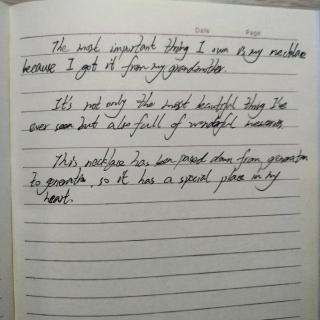 Date Page
The most important thing I own is my necklace
because I got it from my grandmother.
It's not only the most beautiful thing I've
ever seen but also full of wonderful memories.
This necklace has been passed down from generation
to generation, so it has a special place in my
heart.